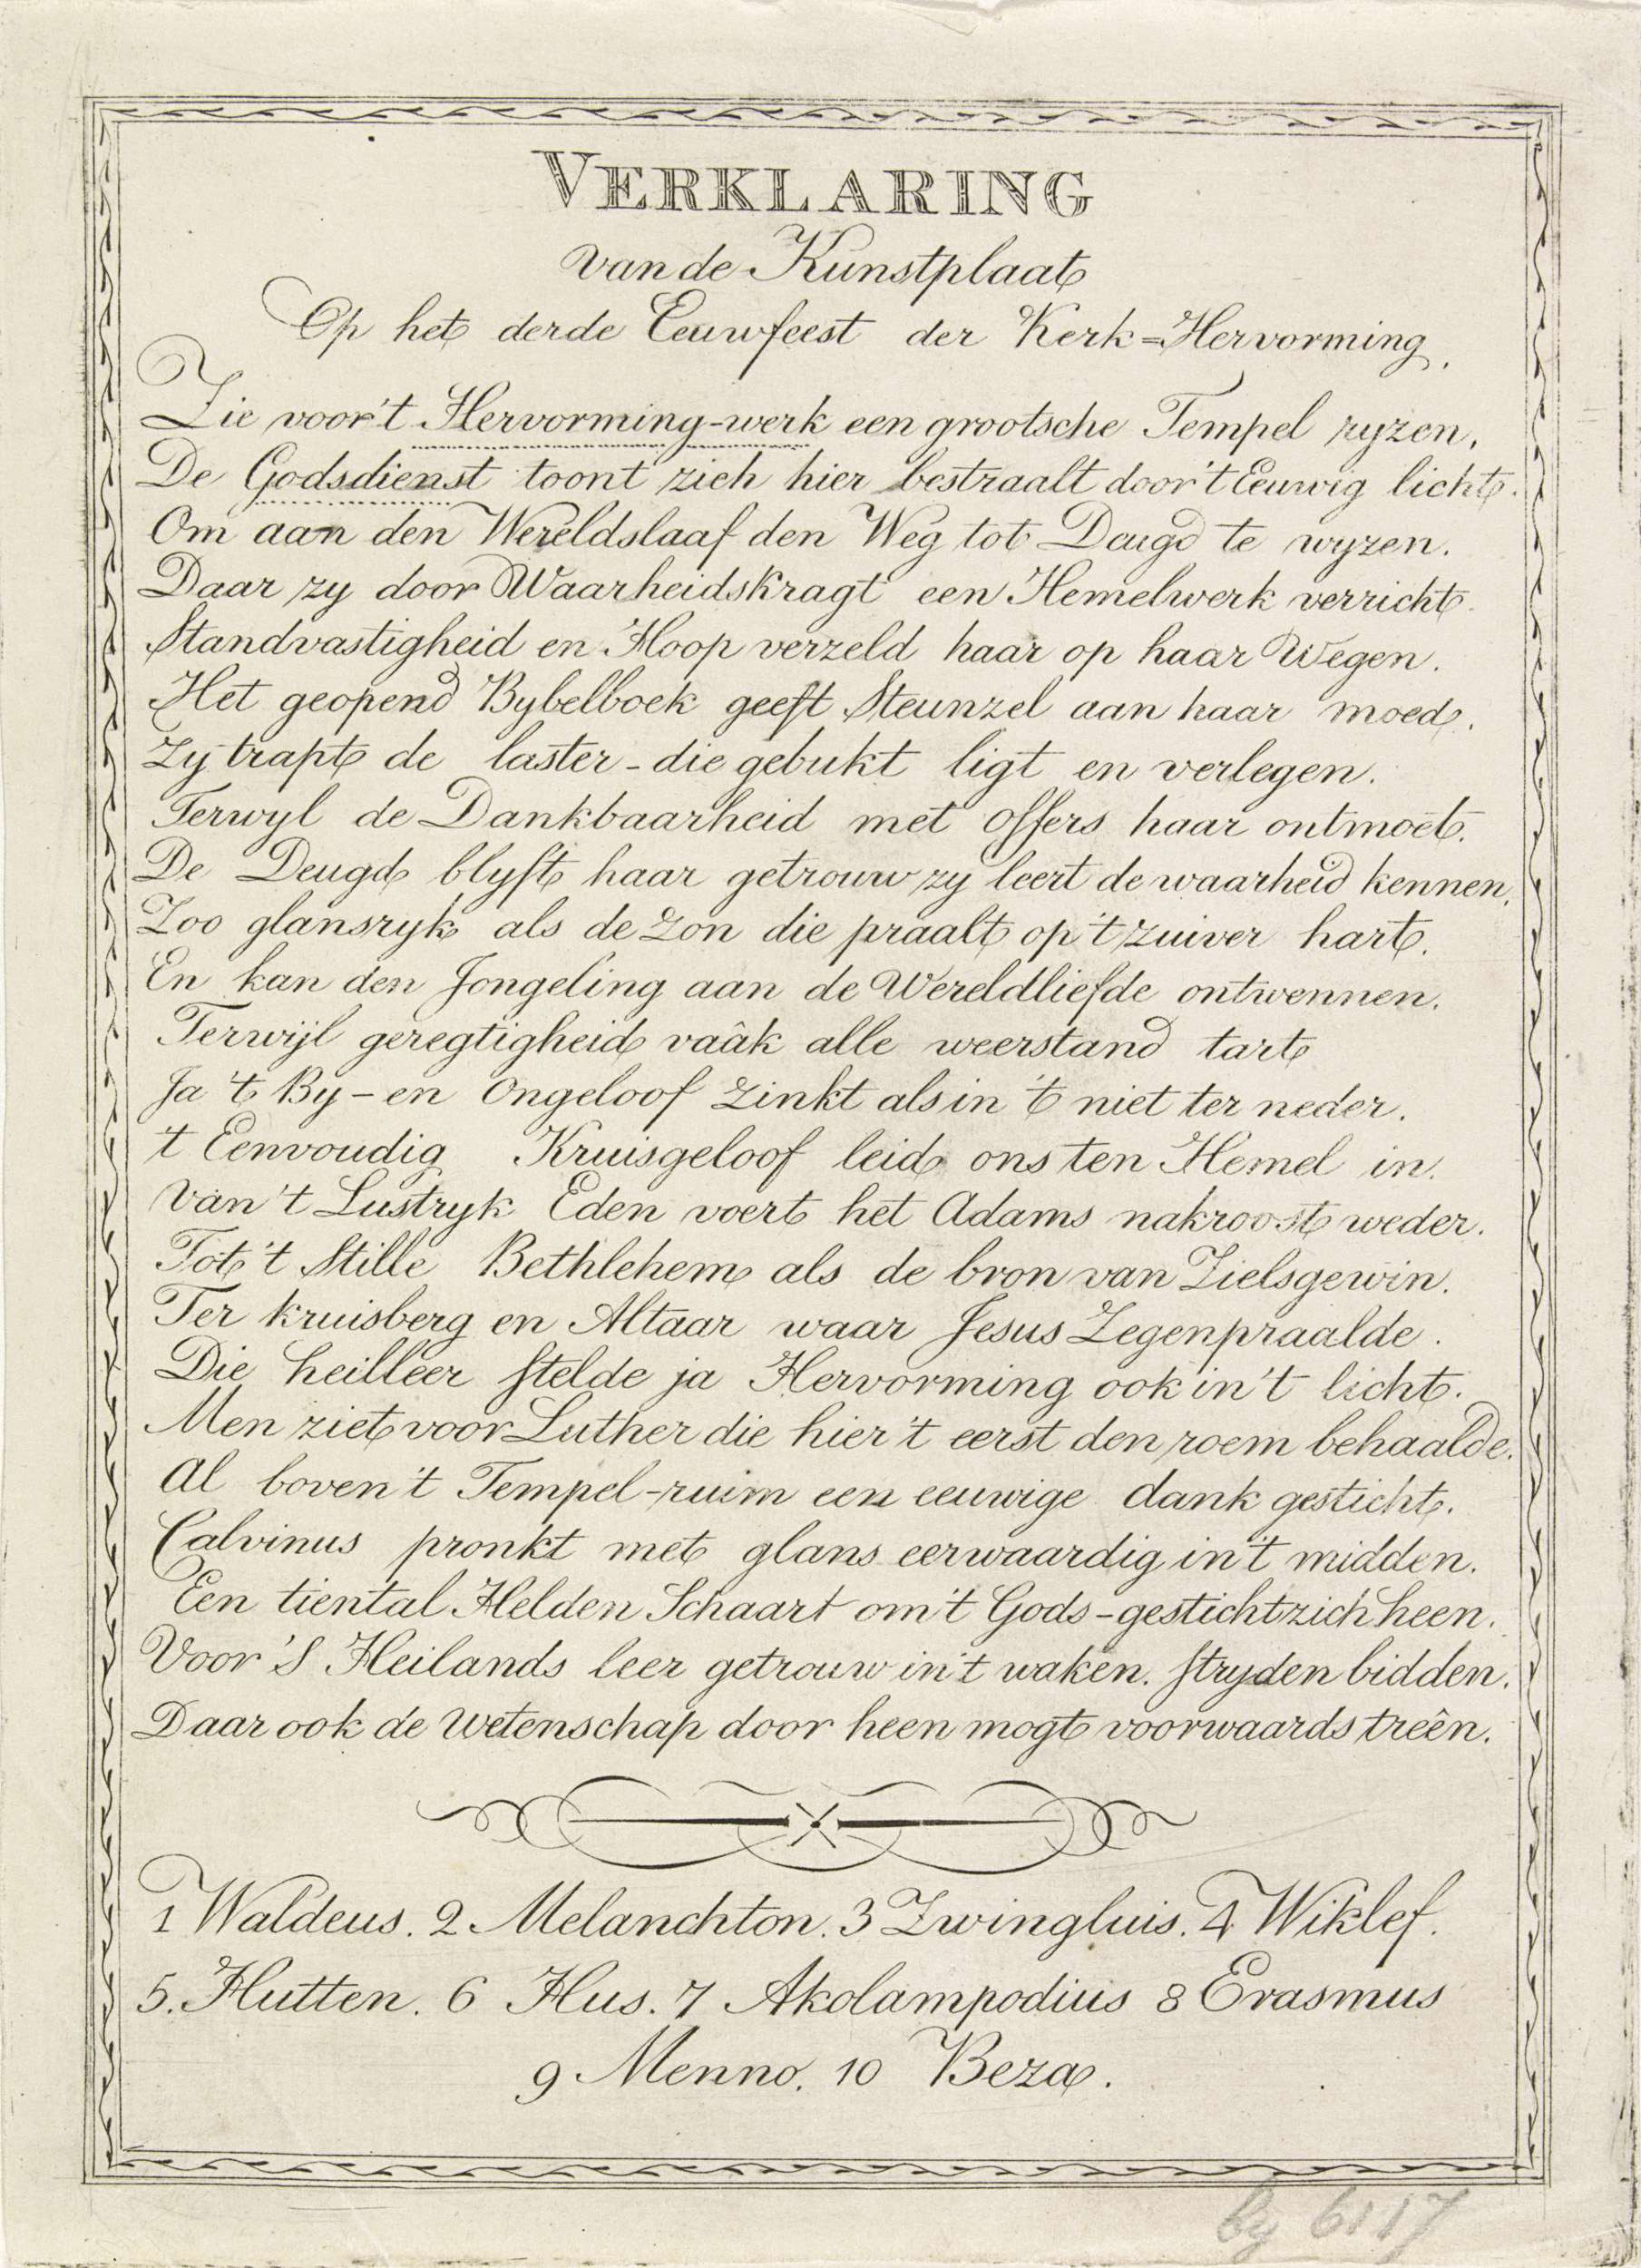 VERKLARING
van de Kunstplaat
Op het derde Eeuwfeest der Kerk=Hervorming.
Zie voor 't Hervorming-werk een grootsche Tempel ryzen,
De Godsdienst toont zich hier bestraalt door 't Eeuwig licht.
Om aan den Wereldslaaf den Weg tot Deugd te wyzen.
Daar zy door Waarheidskragt een Hemelwerk verricht.
Standvastigheid en Hoop verzeld haar op haar Wegen.
Het geopend Bybelboek geeft Steunzel aan haar moed.
Zy trapt de laster - die gebukt ligt en verlegen.
Terwyl de Dankbaarheid met offers haar ontmoet.
De Deugd blyft haar getrouw zy leert de waarheid kennen,
Zoo glansryk als de Zon die praalt op 't zuiver hart.
En kan den Jongeling aan de Wereldliefde ontwennen.
Terwijl geregtigheid vaâk alle weerstand tart
Ja 't By - en Ongeloof Zinkt als in 't niet ter neder.
't Eenvoudig Kruisgeloof leid ons ten Hemel in.
Van 't Lustryk Eden voert het Adams nakroost weder.
Tot 't Stille Bethlehem als de bron van Zielsgewin.
Ter kruisberg en Altaar waar Jesus Zegenpraalde.
Die heilleer stelde ja Hervorming ook in 't licht.
Men ziet voor Luther die hier 't eerst den roem behaalde.
Al boven 't Tempel-ruim een eeuwige dank gesticht.
Calvinus pronkt met glans eerwaardig in 't midden.
Een tiental Helden Schaart om 't Gods-gesticht zich heen.
Voor 'S Heilands leer getrouw in 't waken. stryden bidden.
Daar ook de Wetenschap door heen mogt voorwaards treên.
1 Waldeus. 2 Melanchton. 3 Zwingluis. 4 Wiklef.
5. Hutten. 6 Hus. 7 Akolampodius 8 Erasmus
9 Menno. 10 Beza.
by 6117